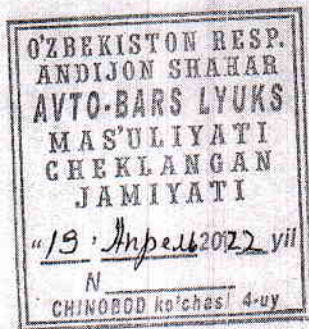 O'ZBEKISTON RESP.
ANDIJON SHAHAR
AVTO-BARS LYUKS
MAS'ULIYATI
CHEKLANGAN
JAMIYATI
"19" Апрель 2022 yil
N
CHINOBOD ko'chasi 4-uy